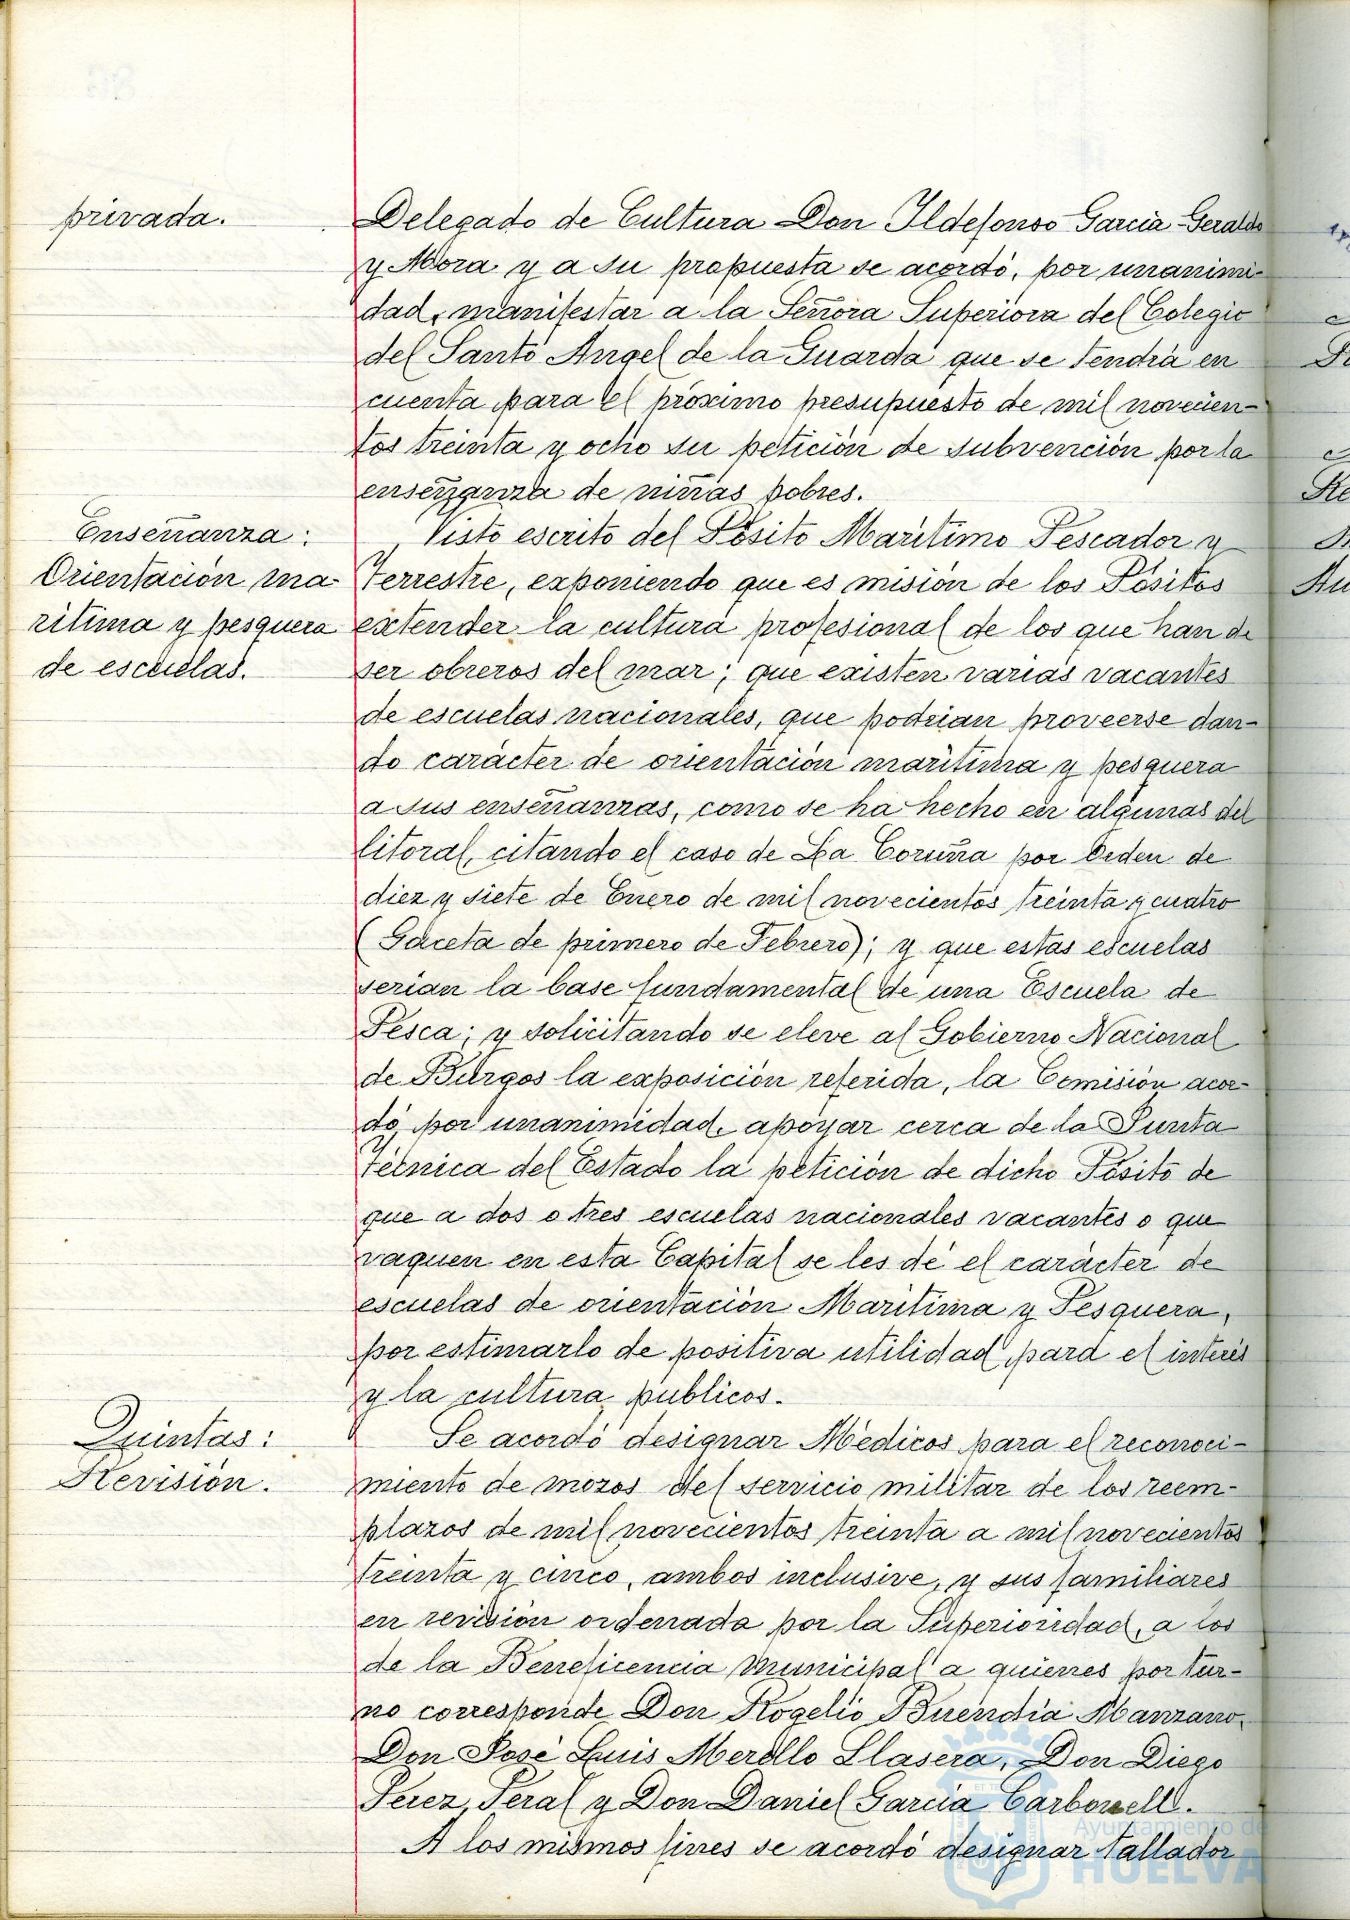 privada.
Delegado de Cultura Don Ildefonso García-Geraldo
y Mora y a su propuesta se acordó, por unanimi-
dad, manifestar a la Señora Superiora del Colegio
del Santo Angel de la Guarda que se tendrá en
cuenta para el próximo presupuesto de mil novecien-
tos treinta y ocho su petición de subvención por la
enseñanza de niñas pobres.
Enseñanza:
Orientación ma-
rítima y pesquera
de escuelas.
Visto escrito del Pósito Marítimo Pescador y
Terrestre, exponiendo que es misión de los Pósitos
extender la cultura profesional de los que han de
ser obreros del mar; que existen varias vacantes
de escuelas nacionales, que podrian proveerse dan-
do carácter de orientación marítima y pesquera
a sus enseñanzas, como se ha hecho en algunas del
litoral, citando el caso de La Coruña por Orden de
diez y siete de Enero de mil novecientos treinta y cuatro
(Gaceta de primero de Febrero); y que estas escuelas
serian la base fundamental de una Escuela de
Pesca; y solicitando se eleve al Gobierno Nacional
de Burgos la exposición referida, la Comisión acor-
dó, por unanimidad, apoyar cerca de la Junta
Técnica del Estado la petición de dicho Pósito de
que a dos o tres escuelas nacionales vacantes o que
vaquen en esta Capital se les dé el carácter de
escuelas de orientación Marítima y Pesquera,
por estimarlo de positiva utilidad para el interés
y la cultura publicos.
Quintas:
Revisión.
Se acordó designar Médicos para el reconoci-
miento de mozos del servicio militar de los reem-
plazos de mil novecientos treinta a mil novecientos
treinta y cinco, ambos inclusive, y sus familiares
en revisión ordenada por la Superioridad, a los
de la Beneficencia Municipal a quienes por tur-
no corresponde Don Rogelio Buendía Manzano,
Don José Luis Merello Llasera, Don Diego
Perez Peral y Don Daniel García Carbonell.
A los mismos fines se acordó designar tallador
Ayuntamiento de
HUELVA